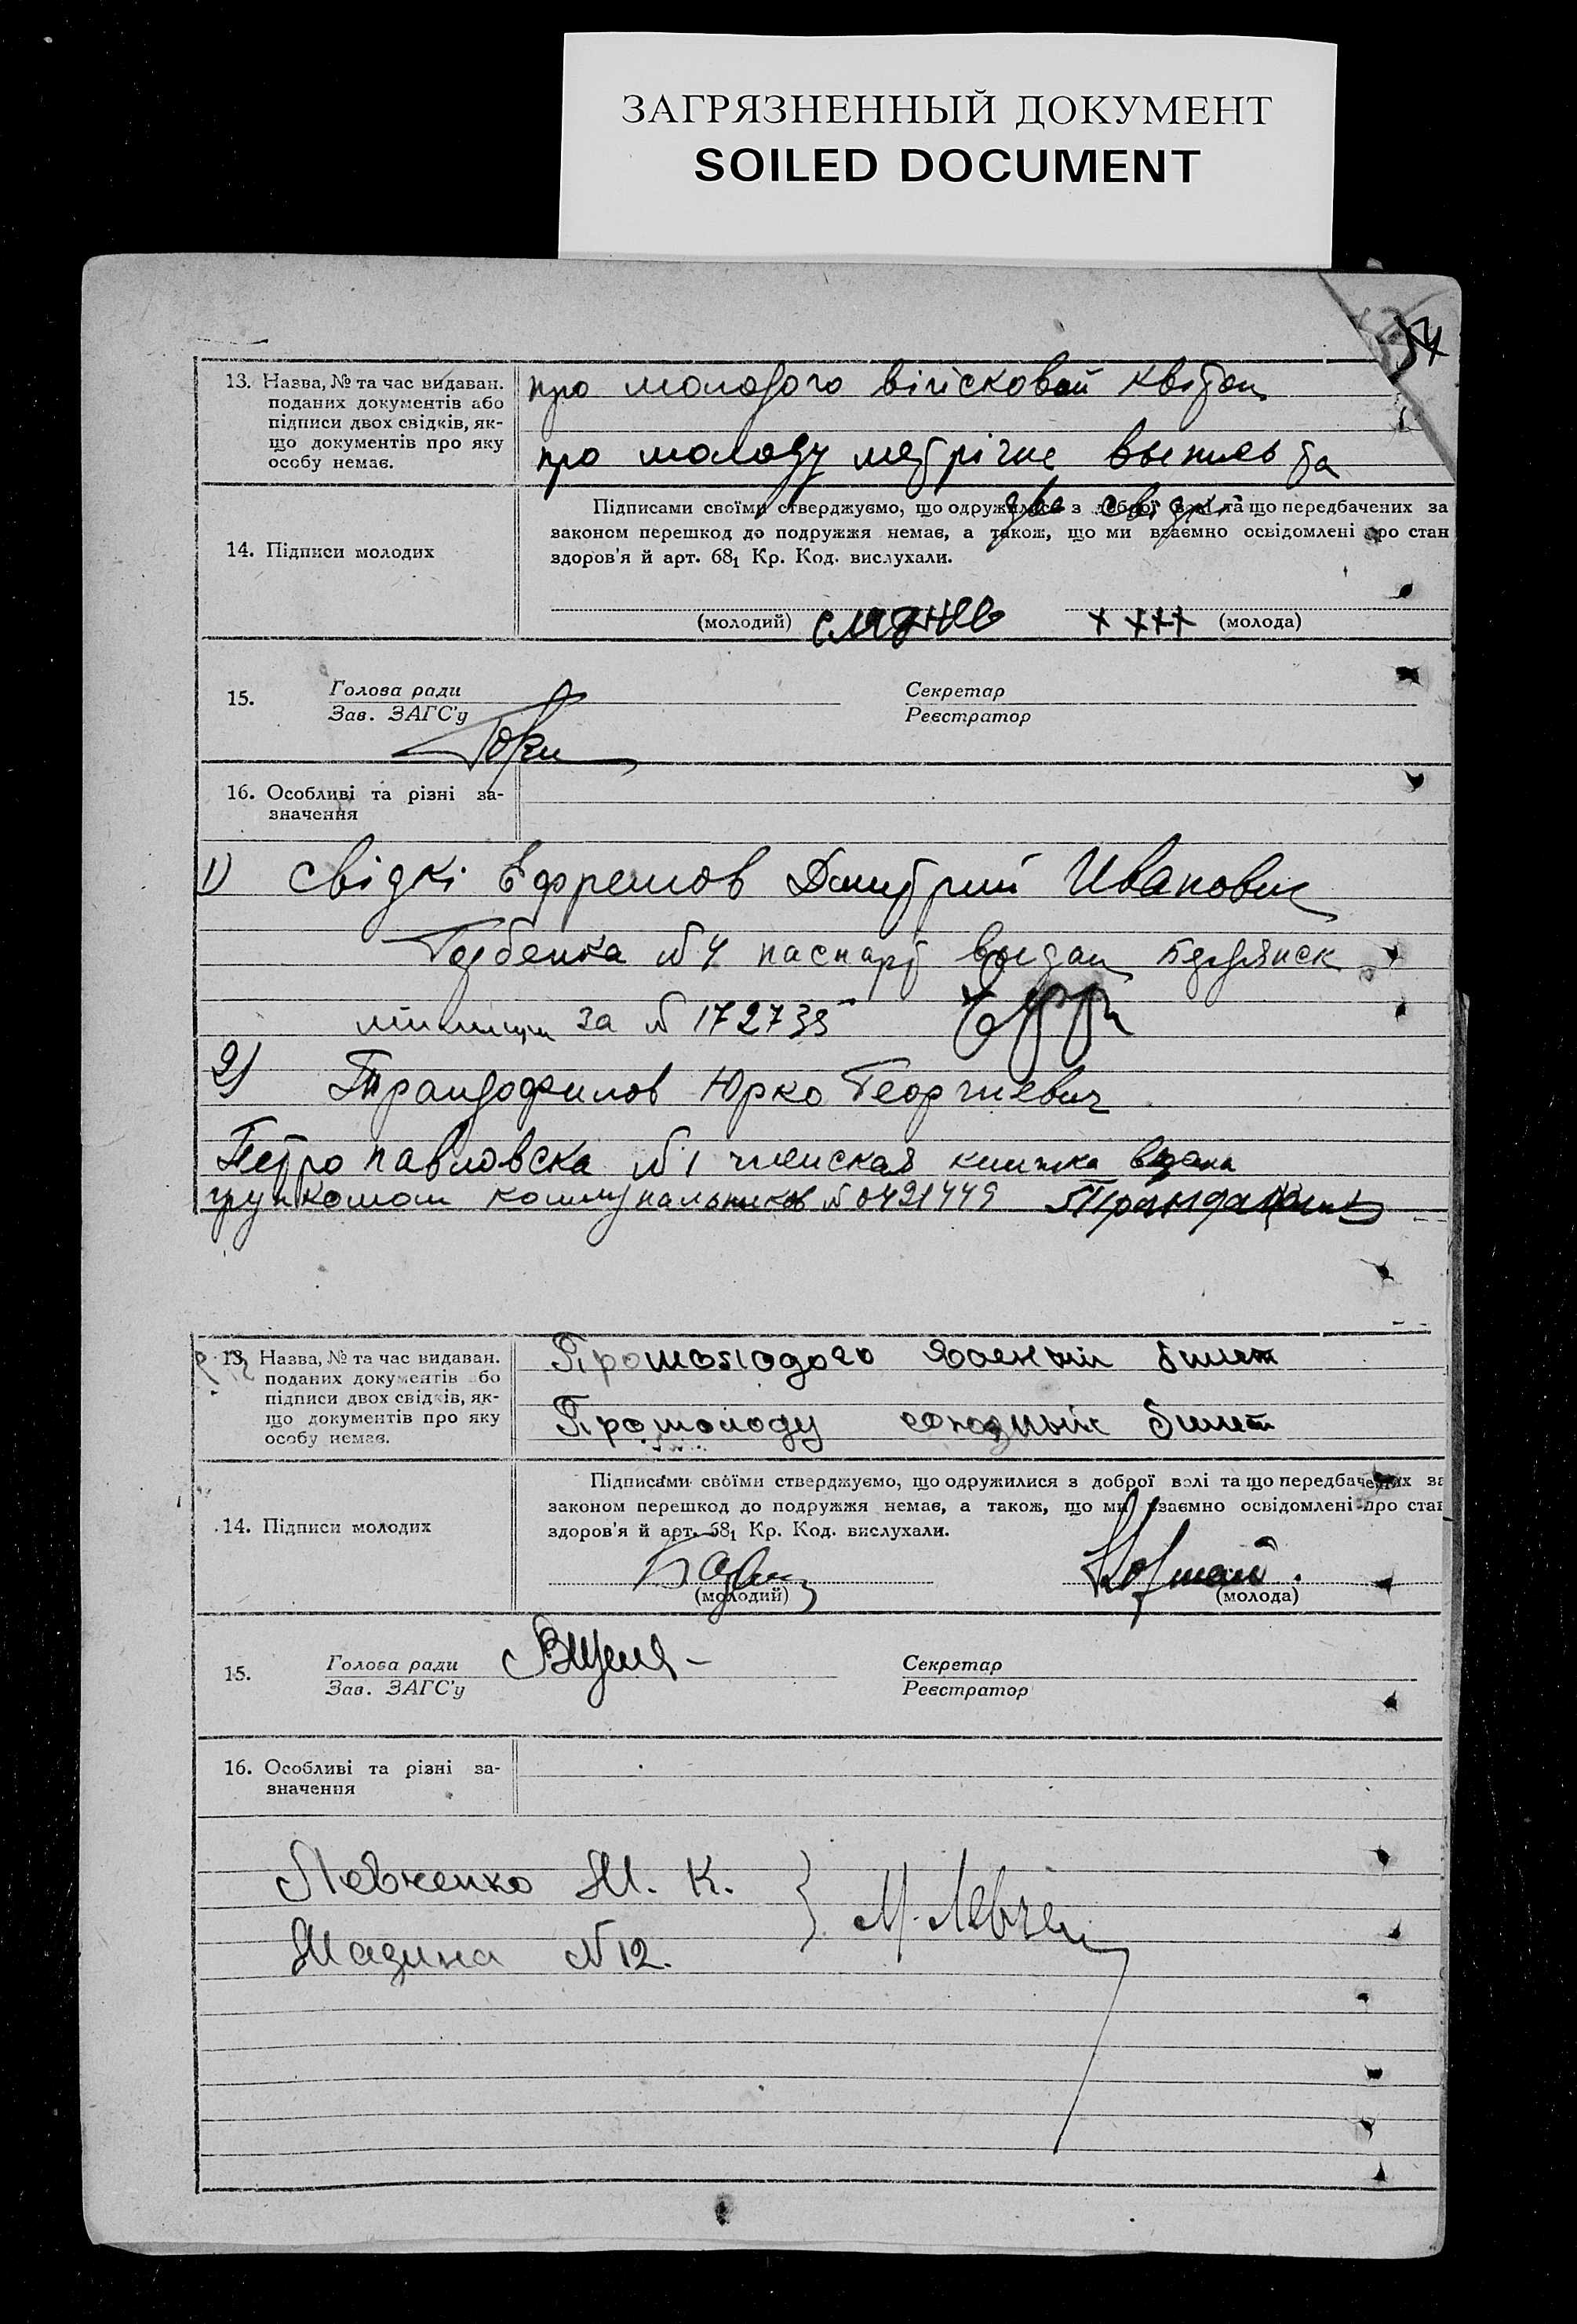 ЗАГРЯЗНЕННЫЙ ДОКУМЕНТ
SOILED DOCUMENT
13. Назва, № та час видаван. поданих документів або підписи двох свідків, як-
що документів про яку
особу немає.
про молодого війсковой квіток
про молоду метрічне выпись та
два свідкі
14. Підписи молодих
Підписами своїми стверджуємо, що одружилися з доброї волі та що передбачених за
законом перешкод до подружжя немає, а також, що ми взаємно освідомлені про стан
здоров'я й арт. 68₁ Кр. Код. вислухали.
(молодий)
хххх (молода)
15.
Голова ради
Зав. ЗАГС'у
Секретар
Реєстратор
16. Особливі та різні за-
значення
1) свідкі Ефремов Дмитрий Иванович
№ 4 паспорт выдан Бердянск
милиции за № 172735
2) Трандофилов Юрко Георгиевич
Петропавловска № 1 членская книжка
групкомом коммунальников № 0421449
13. Назва, № та час видаван.
поданих документів або
підписи двох свідків, як-
що документів про яку
особу немає.
Про молодого военный билет
Про молоду союзный билет
14. Підписи молодих
Підписами своїми стверджуємо, що одружилися з доброї волі та що передбачених за
законом перешкод до подружжя немає, а також, що ми взаємно освідомлені про стан
здоров'я й арт. 68₁ Кр. Код. вислухали.
(молодий)
(молода)
15.
Голова ради
Зав. ЗАГС'у
Секретар
Реєстратор
16. Особливі та різні за-
значення
Левченко М. К. } М. Левчен
Мазина № 12.